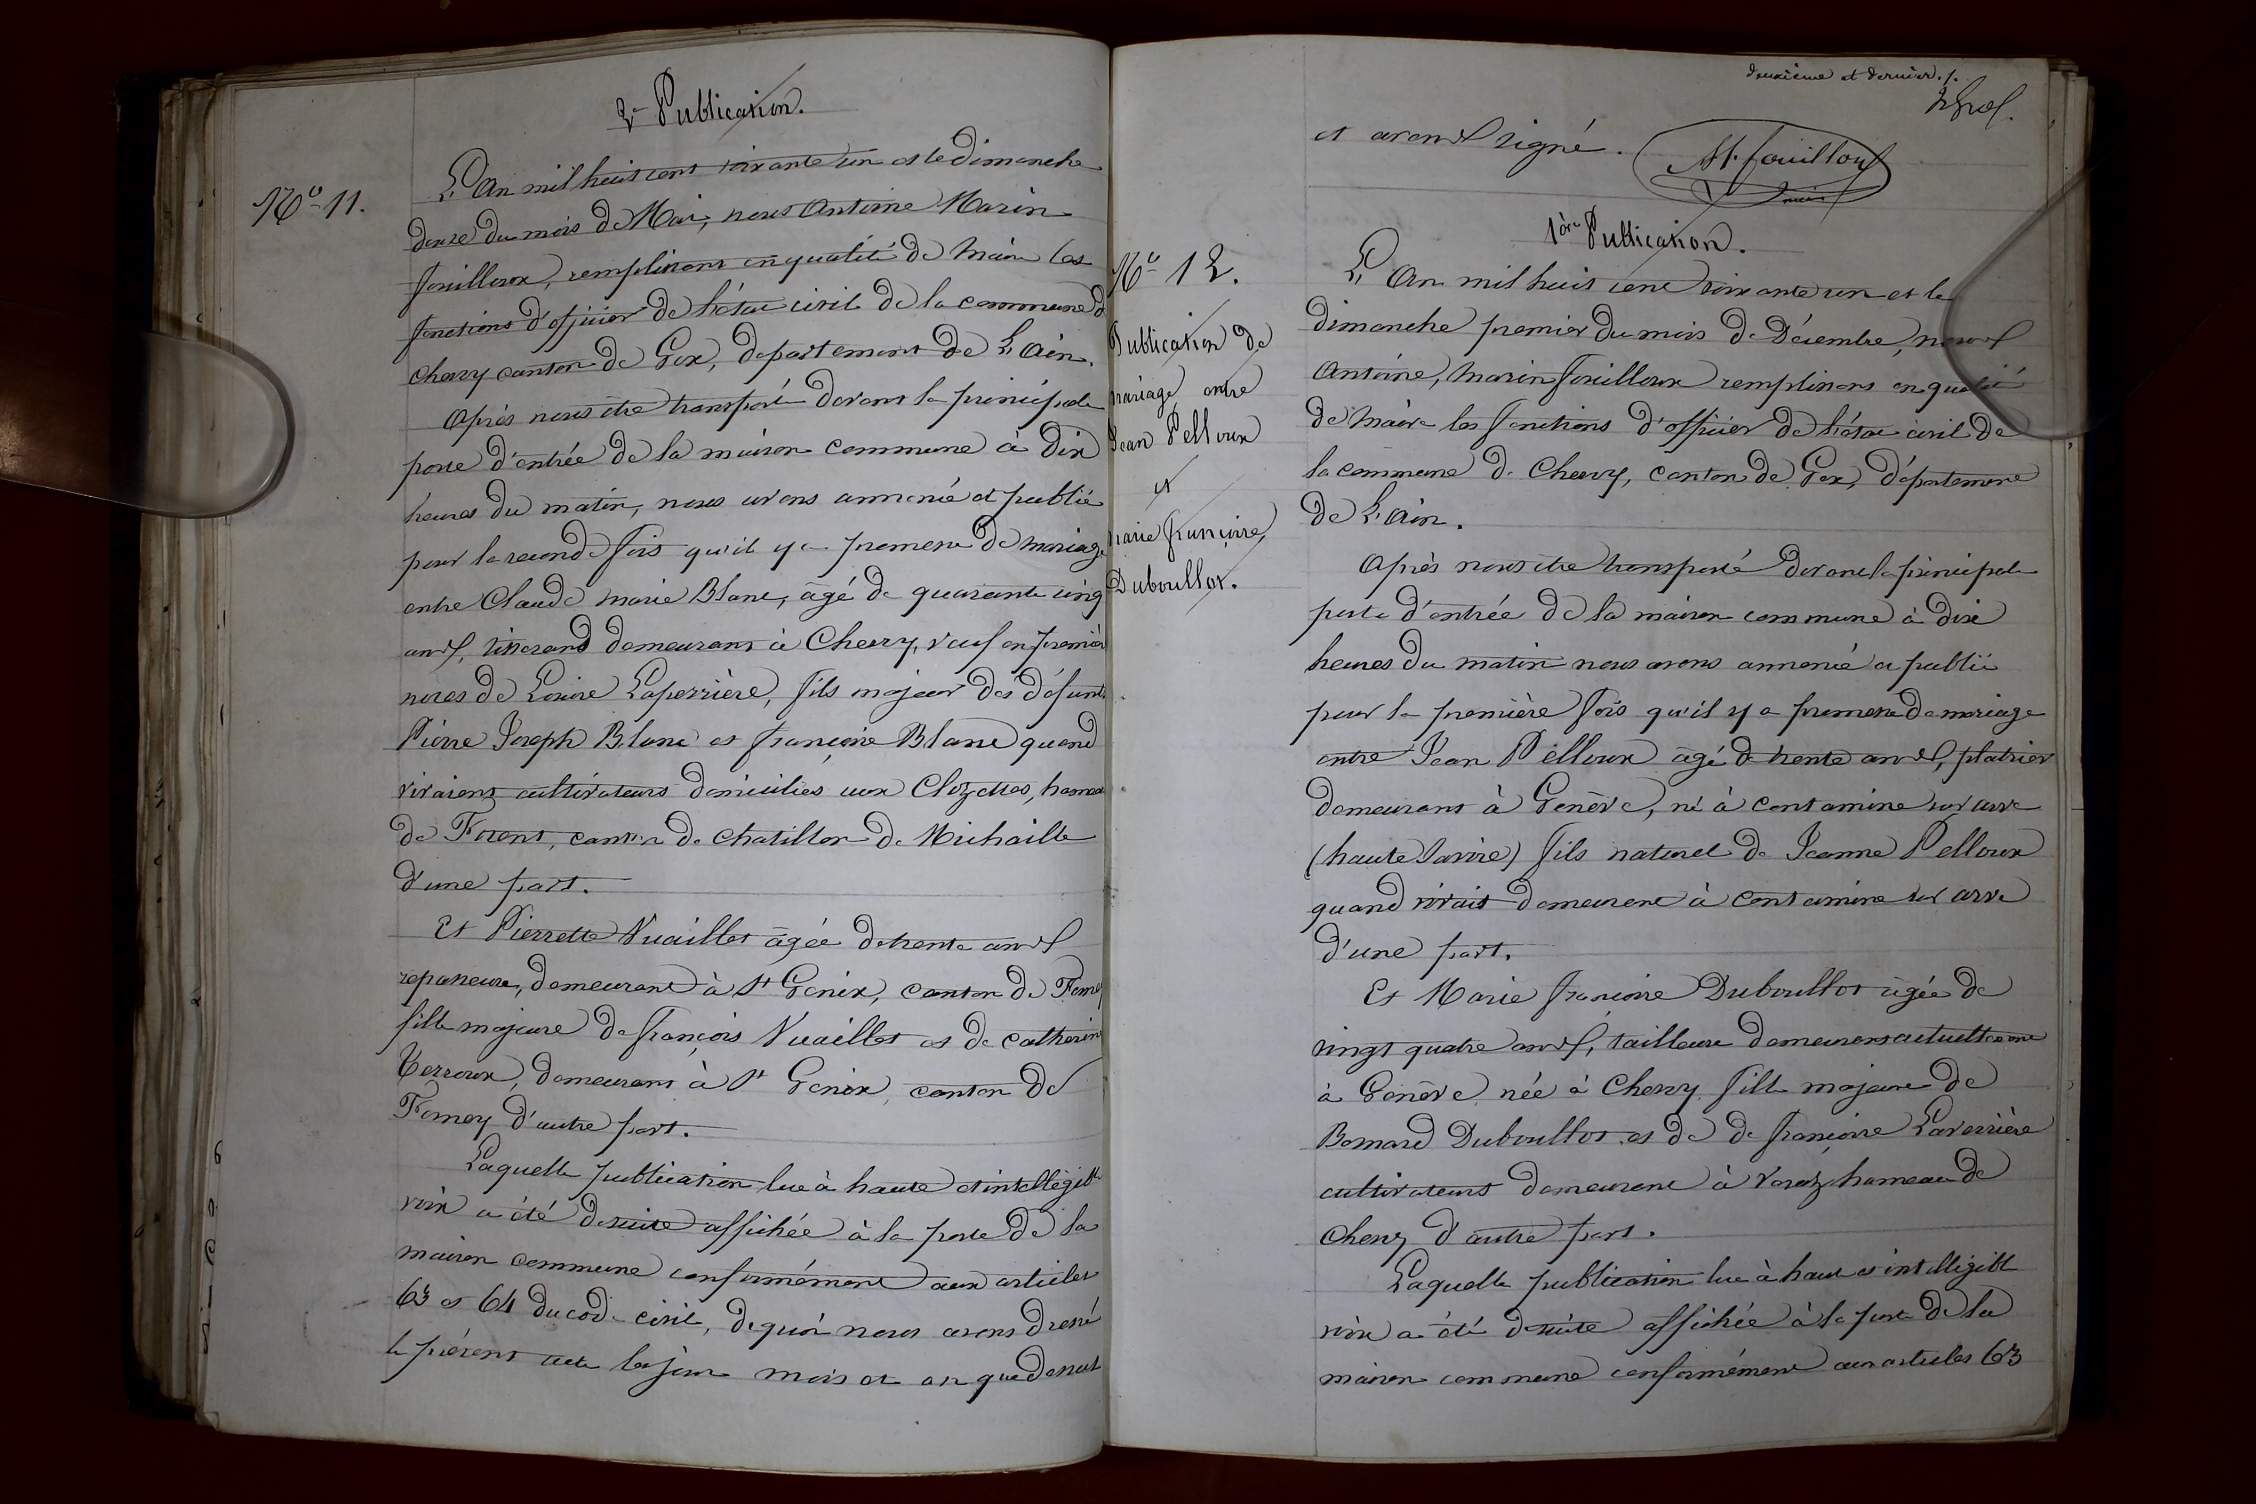 2e Publication.
No 11.
L'An mil huit cent soixante un et le dimanche
douze du mois de Mai, nous Antoine Marin
Fouilloux, remplissant en qualité de Maire les
fonctions d'officier de l'état civil de la commune de
Chevry canton de Gex, département de L'Ain.
Après nous être transporté devant la principale
porte d'entrée de la maison commune à dix
heures du matin, nous avons annoncé et publié
pour la seconde fois qu'il y a promesse de mariage
entre Claude Marie Blanc, âgé de quarante cinq
ans, tisserand demeurant à Chevry, veuf en première
noces de Louise Laperrière, fils majeur des défunts
Pierre Joseph Blanc et françoise Blanc quand
vivaient cultivateurs domiciliés aux Clozettes, hameau
de Forens, canton de Chatillon de Michaille
d'une part.
Et Pierrette Vuaillet âgée de trente ans
repasseuse, demeurant à St Genix, canton de Ferney
fille majeure de françois Vuaillet et de Catherine
Terroux, demeurant à St Genix, canton de
Ferney d'autre part.
Laquelle publication lue à haute et intelligible
voix a été de suite affichée à la porte de la
maison commune conformément aux articles
63 et 64 du code civil, de quoi nous avons dressé
le présent acte les jour mois et an que dessus
deuxième et dernier./.
et avons signé.
M. fouilloux
1ère Publication.
No 12.
Publication de
mariage entre
Jean Pelloux
et
Marie françoise
Duboullot.
L'An mil huit cent soixante un et le
dimanche premier du mois de Décembre, nous
Antoine, Marin Fouilloux remplissant en qualité
de maire les fonctions d'officier de l'état civil de
la commune de Chevry, canton de Gex, département
de L'Ain.
Après nous être transporté devant la principale
porte d'entrée de la maison commune à dix
heures du matin nous avons annoncé et publié
pour la première fois qu'il y a promesse de mariage
entre Jean Pelloux âgé de trente ans, platrier
demeurant à Genève, né à Contamine sur arve
(haute Savoie) fils naturel de Jeanne Pelloux
quand vivait demeurant à Contamine sur arve
d'une part.
Et Marie françoise Duboullot âgée de
vingt quatre ans, tailleuse demeurant actuellement
à Genève née à Chevry fille majeure de
Bernard Duboullot et de de françoise Laverrière
cultivateurs demeurant à Veraz hameau de
Chevry d'autre part.
Laquelle publication lue à haute et intelligible
voix a été de suite affichée à la porte de la
maison commune conformément aux articles 63